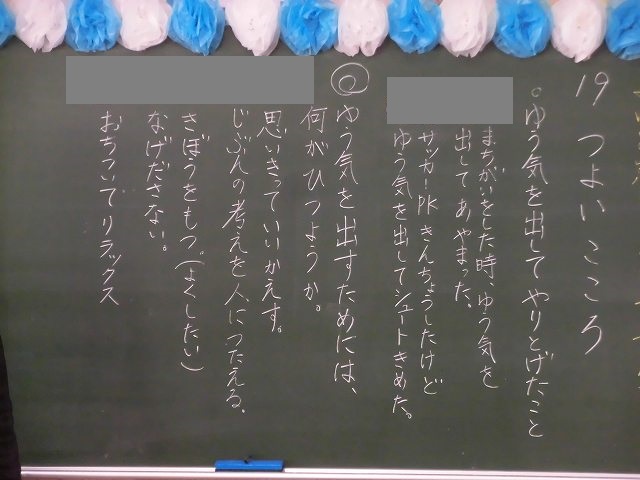 19 つよいこころ
○ゆう気を出してやりとげたこと
まちがいをした時、ゆう気を
出してあやまった。
サッカーPKきんちょうしたけど
ゆう気を出してシュートきめた。
◎ゆう気を出すためには、
何がひつようか。
思いきっていいかえす。
じぶんの考えを人につたえる。
きぼうをもつ。(よくしたい)
なげださない。
おちついてリラックス